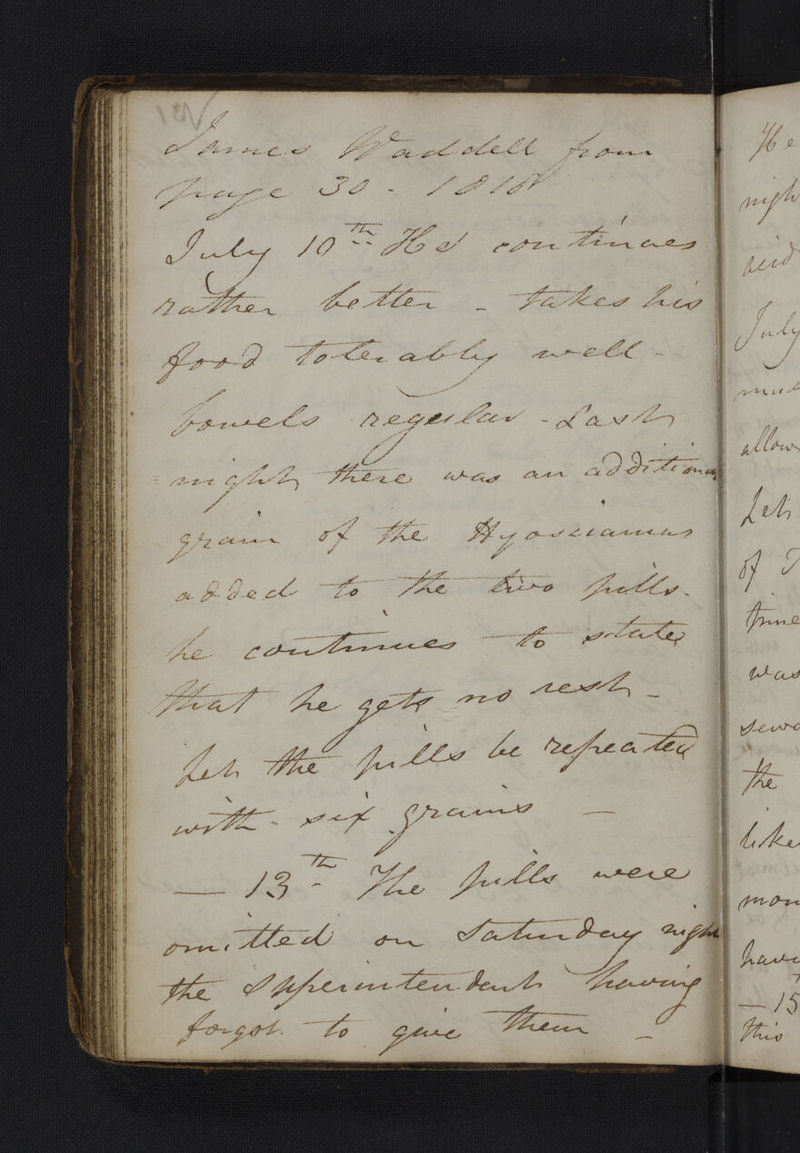 James Waddell from
page 30 - 1818
July 10th He continues
rather better - takes his
food tolerably well -
bowels regular - Last
night there was an additional
grain of the Hyosciamus
added to the two pills.
he continues to state
that he gets no rest -
Let the pills be repeated
with six grains -
- 13th The pills were
omitted on Saturday night
the Superintendant having
forgot to give them -
He
nigh
July
allow
Let
of
time
was
the
like
mon
havi
- 15
this